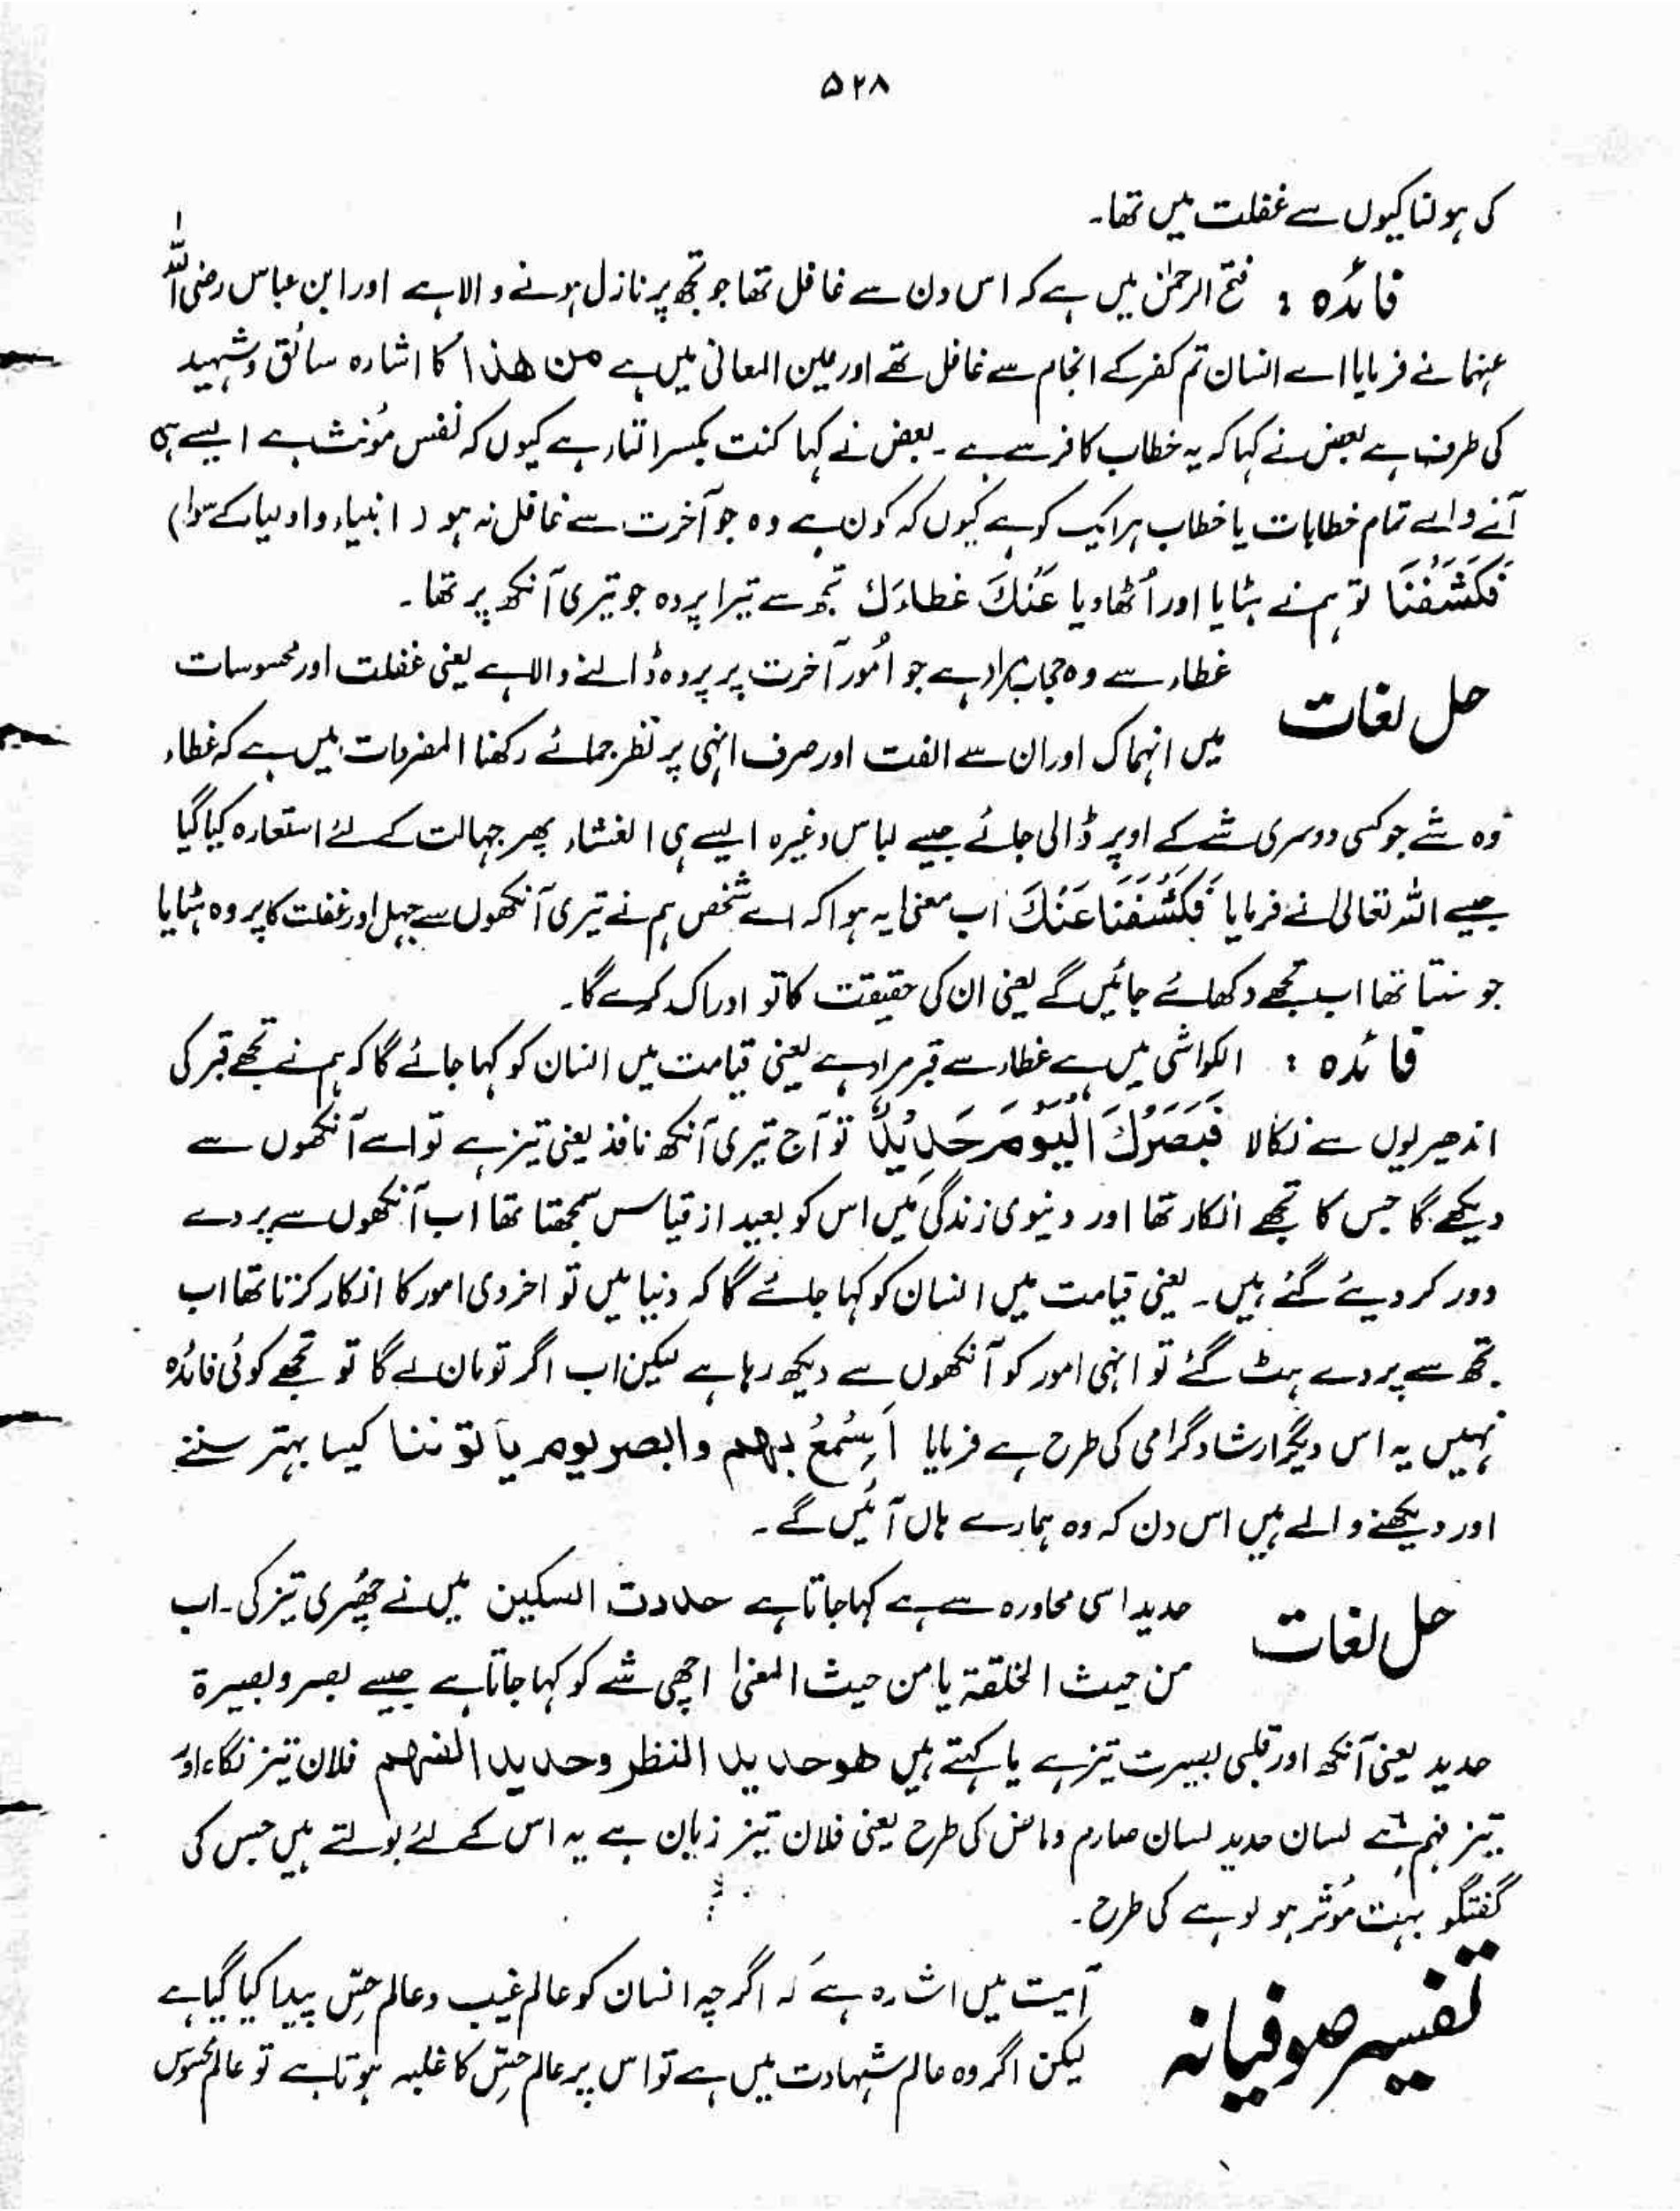 ۵۲۸
کی ہولناکیوں سے غفلت میں تھا۔
فائدہ : فتح الرحمٰن میں ہے کہ اس دن سے غافل تھا جو تجھ پر نازل ہونے والا ہے اور ابن عباس رضی اللہ
عنہما نے فرمایا اے انسان تم کفر کے انجام سے غافل تھے اور عین المعانی میں ہے من ھذا کا اشارہ سائق و شہید
کی طرف ہے بعض نے کہا کہ یہ خطاب کافر سے ہے ۔ بعض نے کہا کنت بکسر التاء ہے کیوں کہ نفس مؤنث ہے ایسے ہی
آنے والے تمام خطابات یا خطاب ہر ایک کو ہے کیوں کہ کون ہے وہ جو آخرت سے غافل نہ ہو ( انبیاء و اولیاء کے سوا )
فَکَشَفْنَا تو ہم نے ہٹایا اور اُٹھا دیا عَنْکَ غطاءَکَ تجھ سے تیرا پردہ جو تیری آنکھ پر تھا ۔
حل لغات غطاء سے وہ حجاب مراد ہے جو اُمور آخرت پر پردہ ڈالنے والا ہے یعنی غفلت اور محسوسات
میں انہماک اور ان سے الفت اور صرف انہی پر نظر جمائے رکھنا المفردات میں ہے کہ غطاء
وہ شے جو کسی دوسری شے کے اوپر ڈالی جائے جیسے لباس وغیرہ ایسے ہی الغشاء پھر جہالت کے لئے استعارہ کیا گیا
جیسے اللہ تعالیٰ نے فرمایا فَکَشَفْنَا عَنْکَ اب معنیٰ یہ ہوا کہ اے شخص ہم نے تیری آنکھوں سے جہل اور غفلت کا پردہ ہٹایا
جو سنتا تھا اب تجھے دکھائے جائیں گے یعنی ان کی حقیقت کا تو ادراک کرے گا۔
فائدہ : الکواشی میں ہے غطاء سے قبر مراد ہے یعنی قیامت میں انسان کو کہا جائے گا کہ ہم نے تجھے قبر کی
اندھیریوں سے نکالا فَبَصَرُکَ الْیَوْمَ حَدِیْدٌ تو آج تیری آنکھ نافذ یعنی تیز ہے تو اسے آنکھوں سے
دیکھے گا جس کا تجھے انکار تھا اور دنیوی زندگی میں اس کو بعید از قیاس سمجھتا تھا اب آنکھوں سے پردے
دور کر دیئے گئے ہیں ۔ یعنی قیامت میں انسان کو کہا جائے گا کہ دنیا میں تو اخروی امور کا انکار کرتا تھا اب
تجھ سے پردے ہٹ گئے تو انہی امور کو آنکھوں سے دیکھ رہا ہے لیکن اب اگر تو مان لے گا تو تجھے کوئی فائدہ
نہیں یہ اس دیگر ارشاد گرامی کی طرح ہے فرمایا اَسْمِعْ بھم وابصر یوم یأتوننا کیسا بہتر سننے
اور دیکھنے والے ہیں اس دن کہ وہ ہمارے ہاں آئیں گے ۔
حل لغات حدید اسی محاورہ سے ہے کہا جاتا ہے حددت السکین میں نے چھُری تیز کی ۔ اب
من حیث الخلقۃ یا من حیث المعنیٰ اچھی شے کو کہا جاتا ہے جیسے بصر و بصیرۃ
حدید یعنی آنکھ اور قلبی بصیرت تیز ہے یا کہتے ہیں ھو حدید النظر وحدید الفھم فلان تیز نگاہ اور
تیز فہم ہے لسان حدید لسان صارم و ماض کی طرح یعنی فلان تیز زبان ہے یہ اس کے لئے بولتے ہیں جس کی
گفتگو بہت مؤثر ہو لوہے کی طرح ۔
تفسیر صوفیانہ آیت میں اشارہ ہے کہ اگرچہ انسان کو عالم غیب و عالم حِسّ پیدا کیا گیا ہے
لیکن اگر وہ عالم شہادت میں ہے تو اس پر عالم حِسّ کا غلبہ ہوتا ہے تو عالم محسوس